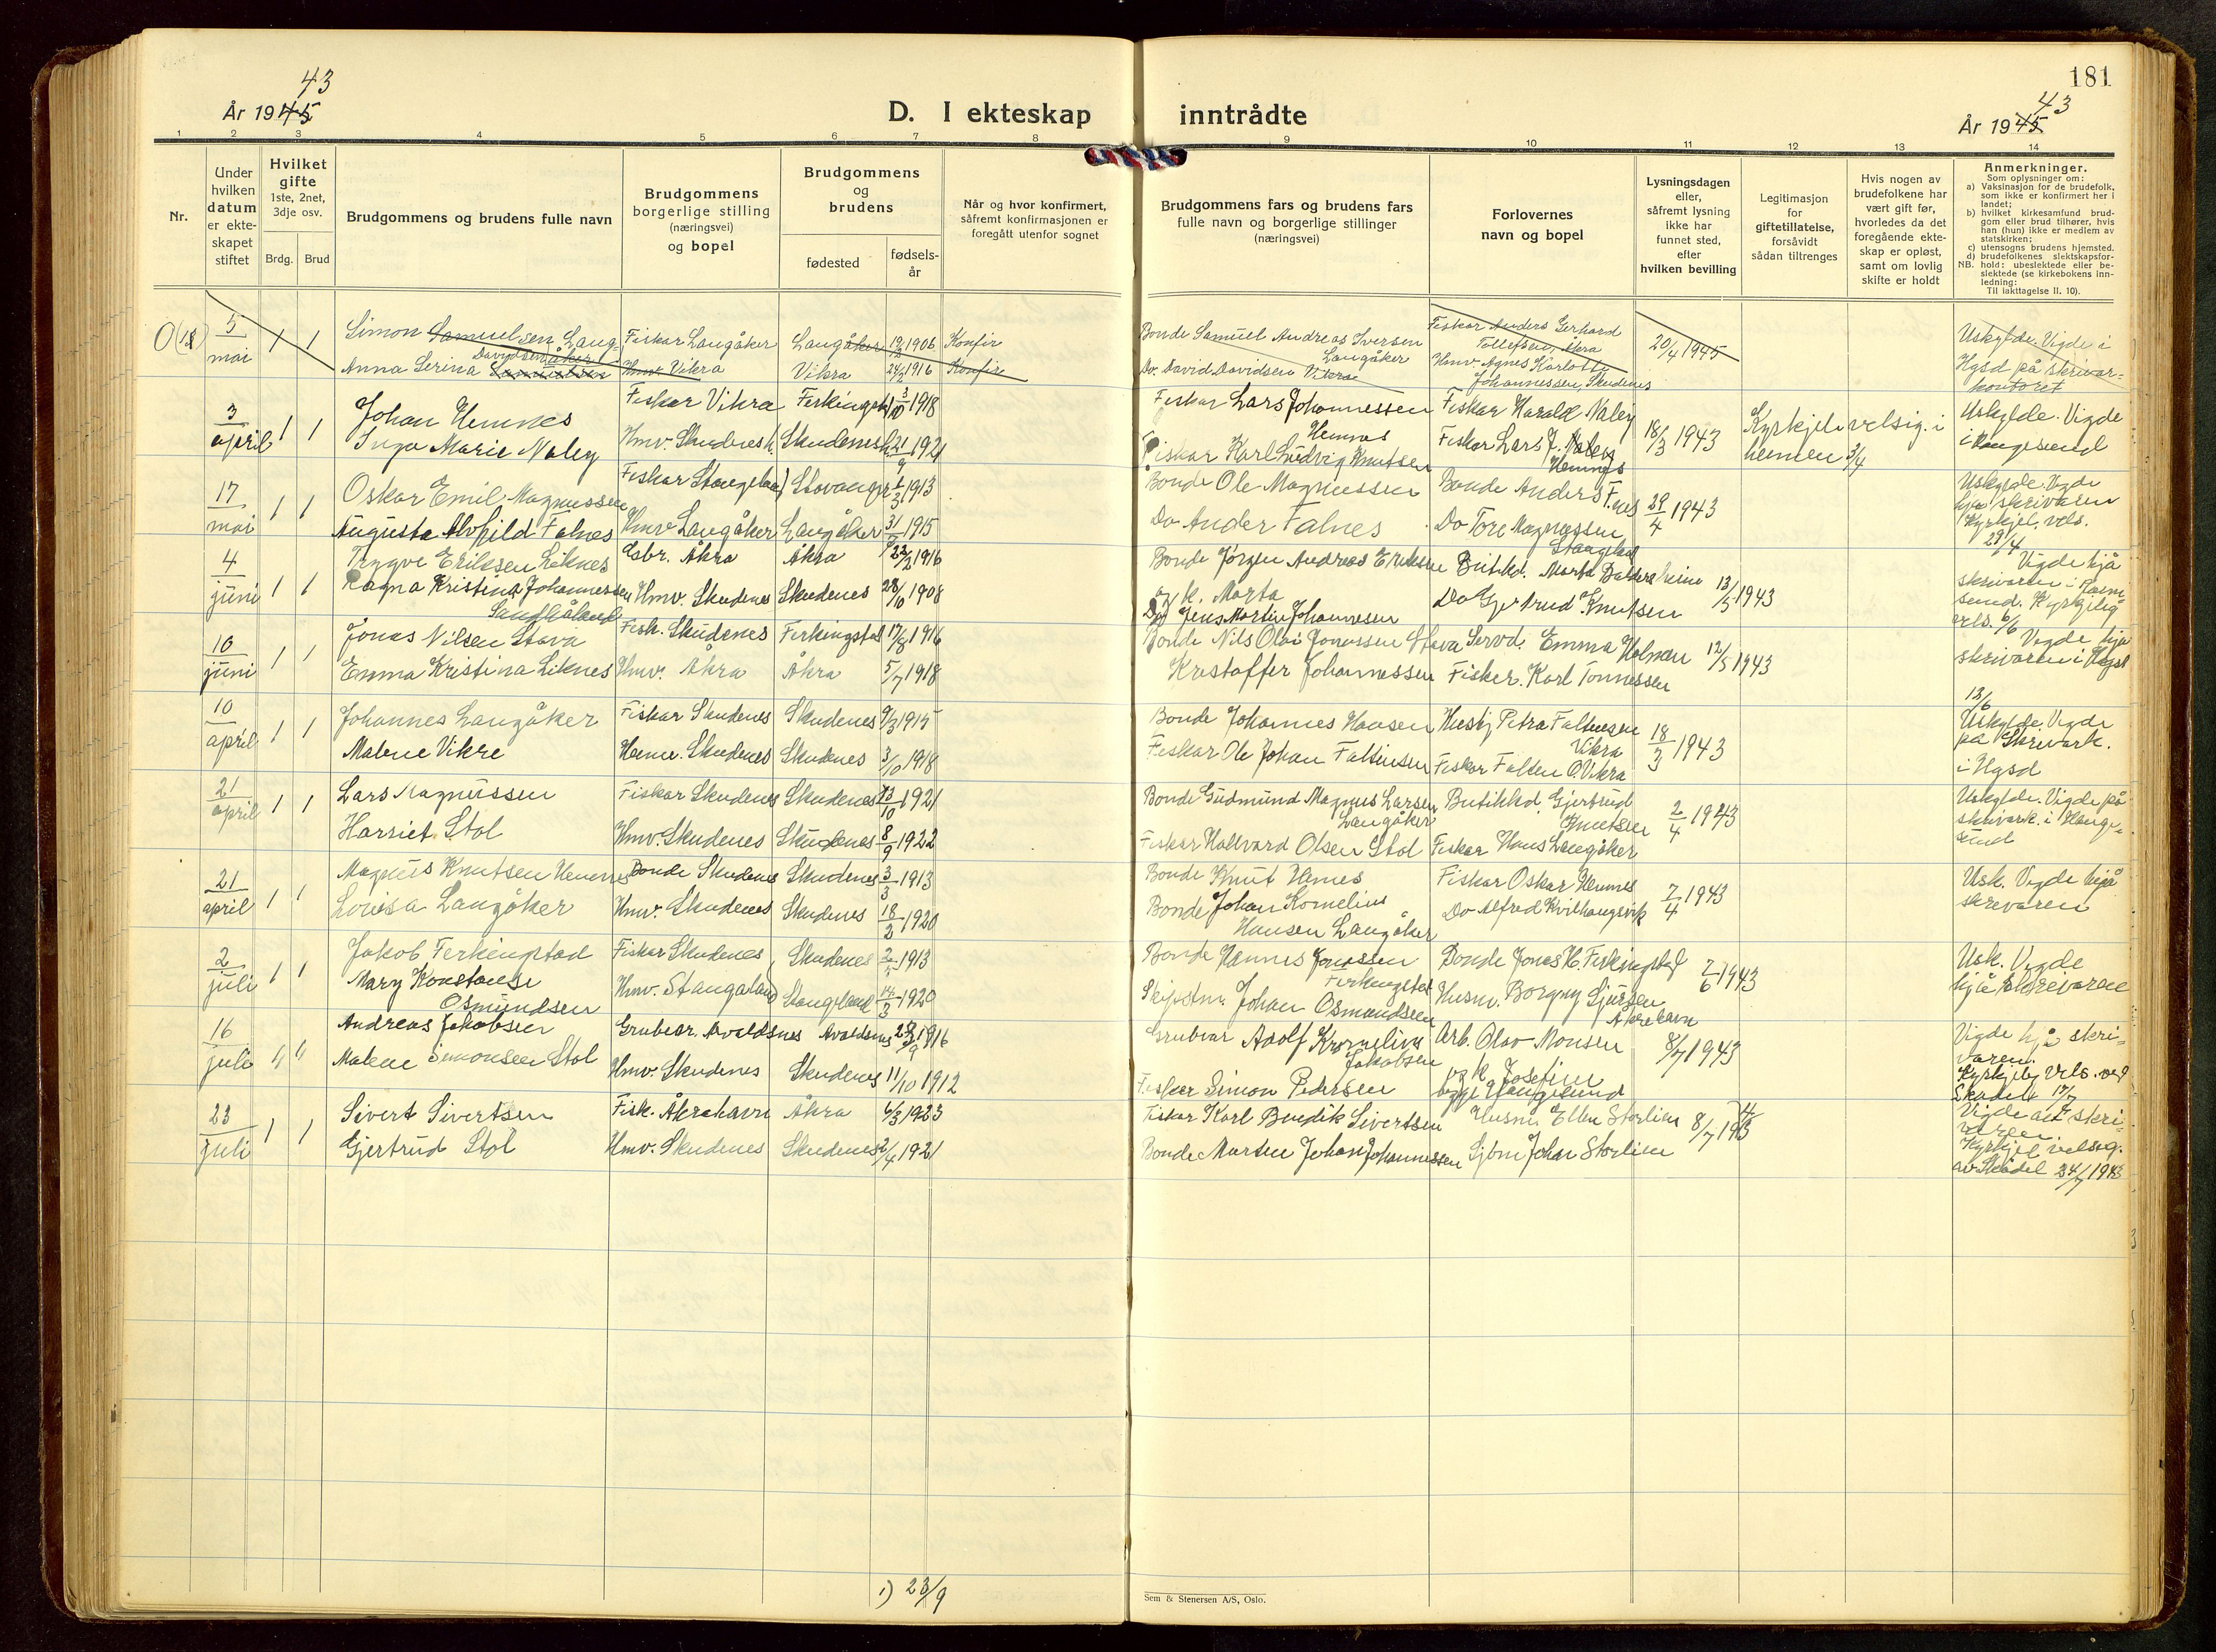 43
År 1945
D. I ekteskap
inntrådte
181
43
År 1945
1 2 3 4 5 6 7 8 9 10 11 12 13 14
Nr.
Under
hvilken
datum
er ekte-
skapet
stiftet
Hvilket
gifte
1ste, 2net,
3dje osv.
Brdg. Brud
Brudgommens og brudens fulle navn
Brudgommens
borgerlige stilling
(næringsvei)
og bopel
Brudgommens
og
brudens
fødested
fødsels-
år
Når og hvor konfirmert,
såfremt konfirmasjonen er
foregått utenfor sognet
Brudgommens fars og brudens fars
fulle navn og borgerlige stillinger
(næringsvei)
Forlovernes
navn og bopel
Lysningsdagen
eller,
såfremt lysning
ikke har
funnet sted,
efter
hvilken bevilling
Legitimasjon
for
giftetillatelse,
forsåvidt
sådan tiltrenges
Hvis nogen av
brudefolkene har
vært gift før,
hvorledes da det
foregående ekte-
skap er opløst,
samt om lovlig
skifte er holdt
Anmerkninger.
Som oplysninger om:
a) Vaksinasjon for de brudefolk,
som ikke er konfirmert her i
landet;
b) hvilket kirkesamfund brud-
gom eller brud tilhører, hvis
han (hun) ikke er medlem av
statskirken;
c) utensogns brudens hjemsted.
d) brudefolkenes slektskapsfor-
NB. hold: ubeslektede eller be-
slektede (se kirkebokens inn-
ledning:
Til iakttagelse II. 10).
5/mai 1 1 Simon Samuelsen Lang-
åker
Fiskar Langåker Langåker 1906 Konfir
Anna Serina Davidsen Hmv. Vikra Vikra 1916 Konfir
Bonde Samuel Andreas Iversen
Langåker
Do. David Davidsen Vikra
Fiskar Anders Gerhard
Tollefsen, Åkra
Hmv. Agnes Karlotte
Johannessen, Skudenes
20/4 1945
Uskylde. Vigde i
Hgsd på skrivar-
kontoret
3/april 1 1 Johan Hemnes Fiskar Vikra Ferkingstad 3/10 1918
Inga Marie Naley Hmv. Skudenesh. Skudenesh. 21/9 1921
Fiskar Lars Johannessen
Hemnes
Fiskar Karl Ludvig Knutsen
Fiskar Harald Naley
Fiskar Lars J.
18/3 1943
Kyrkjele velsig. i
heimen 3/4
Uskylde. Vigde
i Haugesund
17/mai 1 1 Oskar Emil Magnussen Fiskar Stangeland Stavanger 1/3 1913
Augusta Alvhild Falnes Hmv Langåker Langåker 1915
Bonde Ole Magnussen
Do Ander Falnes
Bonde Anders
Do Tore Magnussen
Stangeland
29/4 1943
Uskylde. Vigde
hjå skrivaren
Kyrkjel. vels.
29/4
4/juni 1 1 Trygve Eriksen Liknes Åkra Åkra 1916
Ragna Kristina Johannessen
Sandhåland
Hmv. Skudenes Skudenes 28/10 1908
Bonde Jørgen Andreas Eriksen
og k. Marta
Do Jens Martin Johannesen
Do Gjertrud Knutsen
13/5 1943
Vigde hjå
skrivaren i
sund. Kyrkjelig
vels. 6/6
10/juni 1 1 Jonas Nilsen Stava Fisk. Skudenes Ferkingstad 17/8 1916
Emma Kristina Liknes Hmv. Åkra Åkra 5/7 1918
Bonde Nils Olai Jonassen Stava
Kristoffer Johannessen
Servd. Emma Holmen
Fisker. Karl Tønnessen
12/5 1943
Vigde hjå
skrivaren i Hgsd
12/6
10/april 1 1 Johannes Langåker Fiskar Skudenes Skudenes 9/3 1915
Malene Vikre Heime. Skudenes Skudenes 3/10 1918
Bonde Johannes Hansen
Fiskar Ole Johan Faltinsen
Petra Faltinsen
Vikra
Fiskar Falten O. Vikra
18/3 1943
Uskylde. Vigde
på Skrivark.
i Hgsd
21/april 1 1 Lars Magnussen Fiskar Skudenes Skudenes 13/10 1921
Harriet Stol Hmv. Skudenes Skudenes 8/9 1922
Bonde Gudmund Magnus Larsen
Langåker
Fiskar Hallvard Olsen Stol
Butikkd. Gjertrud
Knutsen
Fiskar Hans Langåker
2/4 1943
Uskylde. Vigde på
skrivark. i Hauge-
sund
21/april 1 1 Magnus Knutsen Hemnes Bonde Skudenes Skudenes 3/3 1913
Lovisa Langåker Hmv. Skudenes Skudenes 18/2 1920
Bonde Knut Hemes
Bonde Johan Kornelius
Hansen Langåker
Fiskar Oskar Hemnes
Do Alfred Kvilhaugsvik
7/4 1943
Usk. Vigde hjå
skrivaren
2/juli 1 1 Jakob Ferkingstad Fiskar Skudenes Skudenes 1913
Mary Konstanse
Osmundsen
Hmv. Stangaland Stangeland 1920
Bonde Hannes Jonassen
Ferkingstad
Skipstm. Johan Osmundsen
Bonde Jonas H. Ferkingstad
Husm. Borgny Sjursen
Åkrehavn
7/6 1943
Usk. Vigde
hjå skrivaren
16/juli Andreas Jakobsen Grubear. Avaldsnes Avaldsnes 1916
Malene Simonsen Stol Hmv. Skudenes Skudenes 11/10 1912
Grubear Adolf Kornelius
Jakobsen
Fiskar Simon Pedersen
Arb. Olav Monsen
og k. Josefine
begge Haugesund
8/7 1943
Vigde hjå skri-
varen.
Kyrkjeleg vels. ved
Skadel 17/7
23/juli 1 1 Sivert Sivertsen Fisk. Åkrahavn Åkra 6/3 1923
Gjertrud Stol Hmv. Skudenes Skudenes 2/4 1921
Fiskar Karl Bendik Sivertsen
Bonde Martin Johan Johannessen
Husm. Ellen Storlien
Sjøm Johan Storlien
8/7 1943
Vigde av skri-
varen.
Kyrkjel velsig.
av Skadel 24/7 1943
1) 23/9
Sem & Stenersen A/S, Oslo.